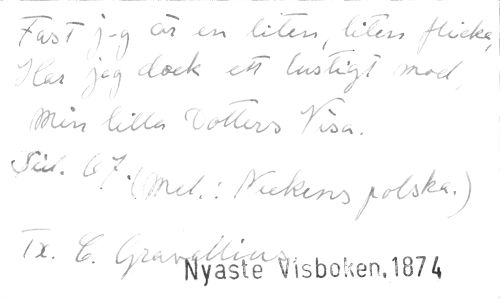 Fast jag är en liten, liten flicka,
Har jag dock ett lustigt mod,
Min lilla Dotters Visa.
Sid. 67.
(Mel.: Neckens polska.)
Tx. C. Gravallius
Nyaste Visboken, 1874